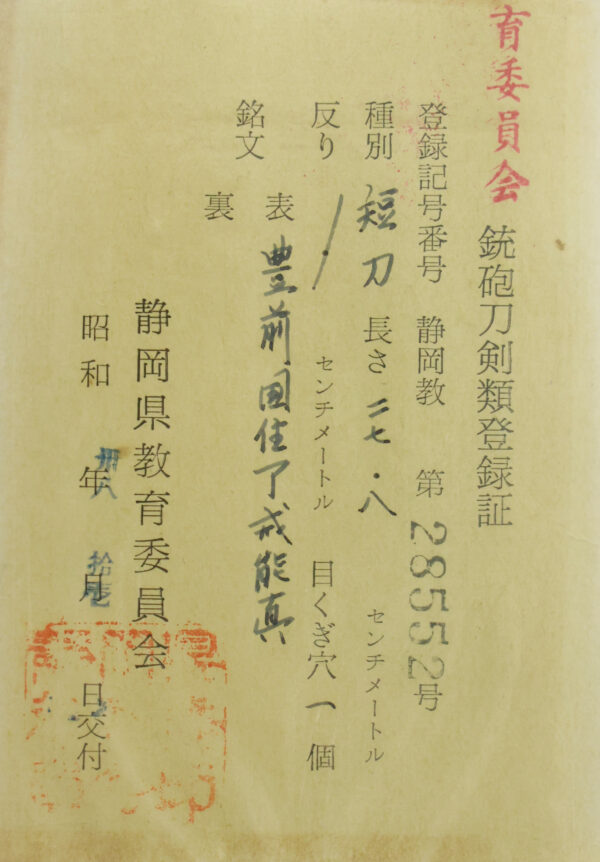 育委員会
銃砲刀剣類登録証
登録記号番号 静岡教 第28552号
種別 短刀 長さ 二七・八 センチメートル
反り ・ センチメートル 目くぎ穴 一 個
銘文 表 豊前国住了戒能真
裏
静岡県教育委員会
昭和 卅八 年 拾壱 月 日交付